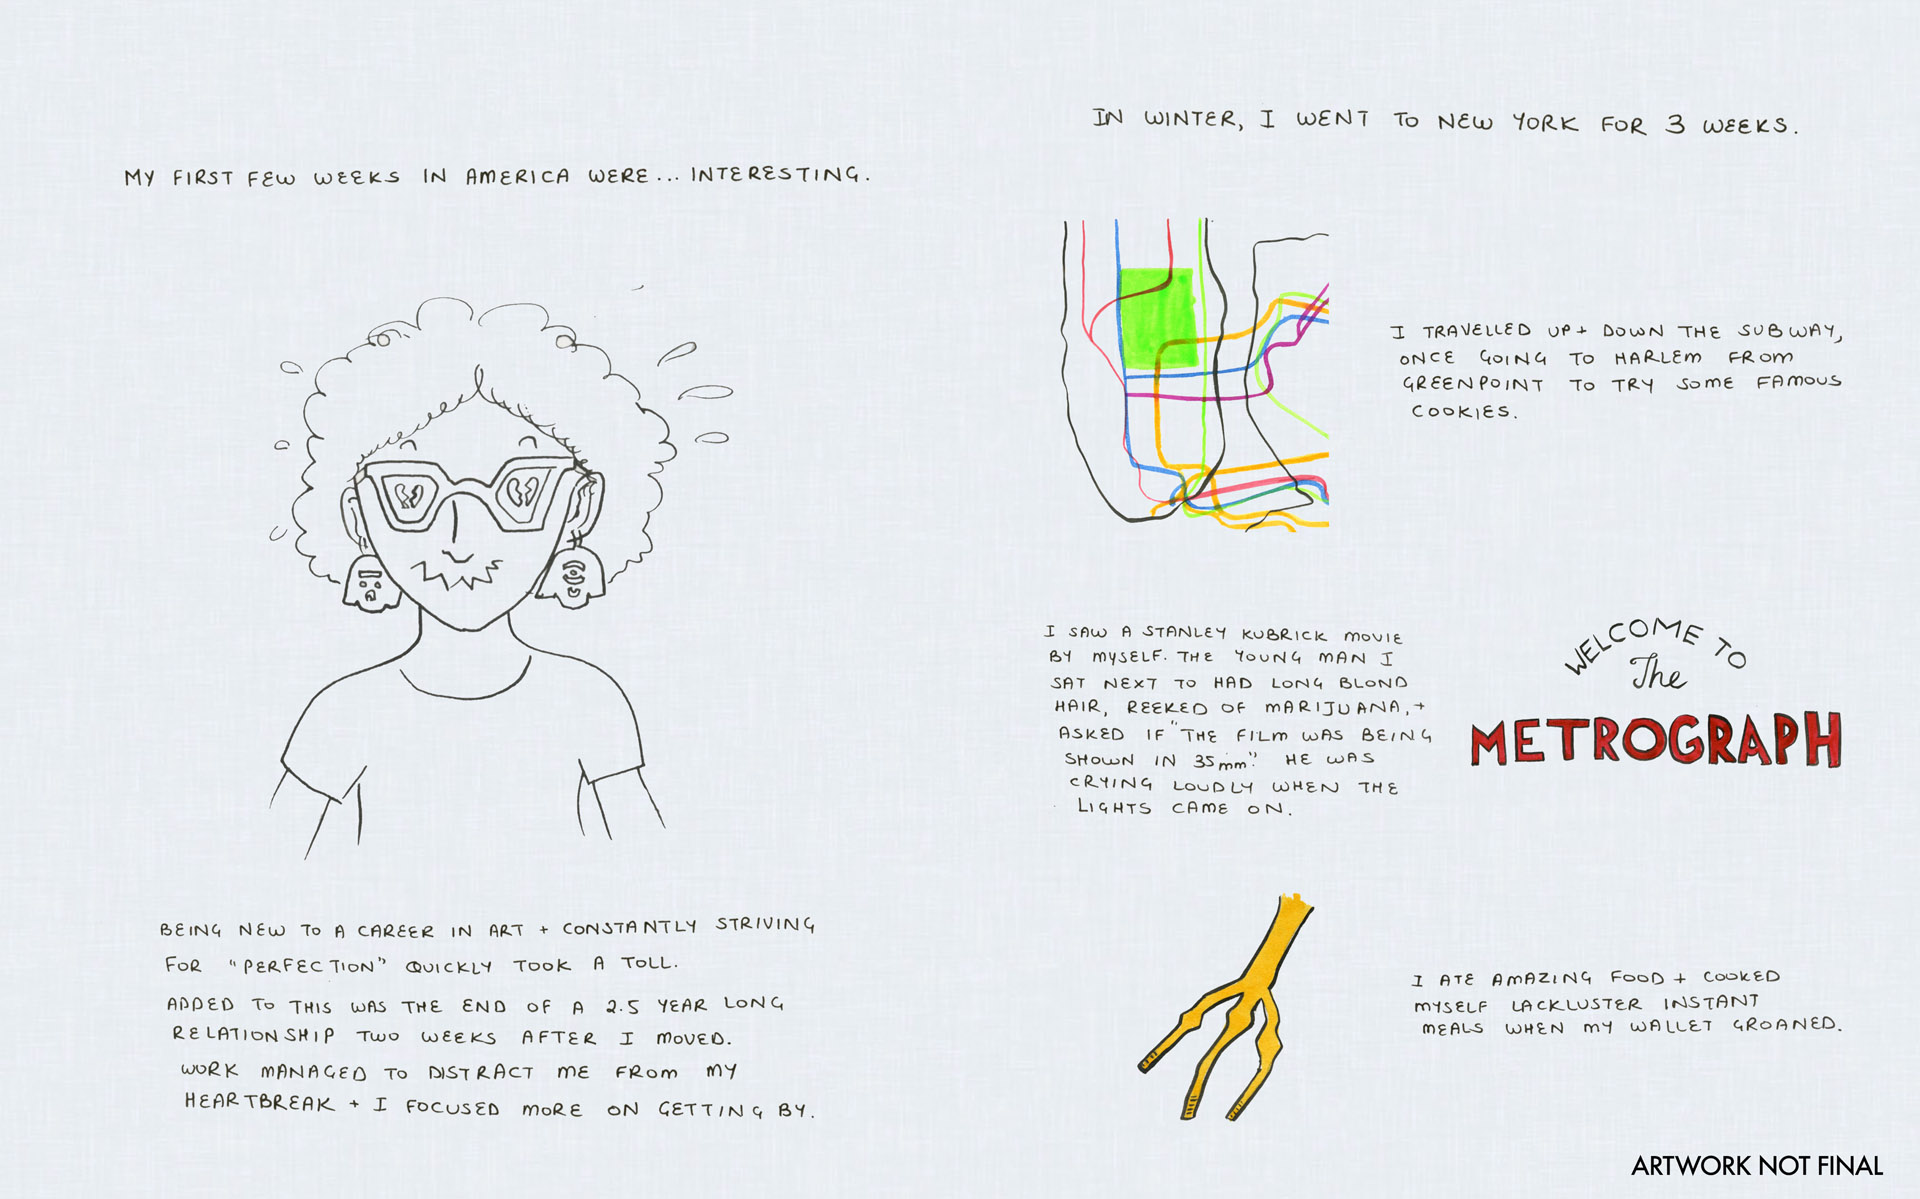 MY FIRST FEW WEEKS IN AMERICA WERE... INTERESTING.
BEING NEW TO A CAREER IN ART + CONSTANTLY STRIVING
FOR "PERFECTION" QUICKLY TOOK A TOLL.
ADDED TO THIS WAS THE END OF A 2.5 YEAR LONG
RELATIONSHIP TWO WEEKS AFTER I MOVED.
WORK MANAGED TO DISTRACT ME FROM MY
HEARTBREAK + I FOCUSED MORE ON GETTING BY.
IN WINTER, I WENT TO NEW YORK FOR 3 WEEKS.
I TRAVELLED UP + DOWN THE SUBWAY,
ONCE GOING TO HARLEM FROM
GREENPOINT TO TRY SOME FAMOUS
COOKIES.
I SAW A STANLEY KUBRICK MOVIE
BY MYSELF. THE YOUNG MAN I
SAT NEXT TO HAD LONG BLOND
HAIR, REEKED OF MARIJUANA, +
ASKED IF "THE FILM WAS BEING
SHOWN IN 35mm." HE WAS
CRYING LOUDLY WHEN THE
LIGHTS CAME ON.
WELCOME TO
The
METROGRAPH
I ATE AMAZING FOOD + COOKED
MYSELF LACKLUSTER INSTANT
MEALS WHEN MY WALLET GROANED.
ARTWORK NOT FINAL